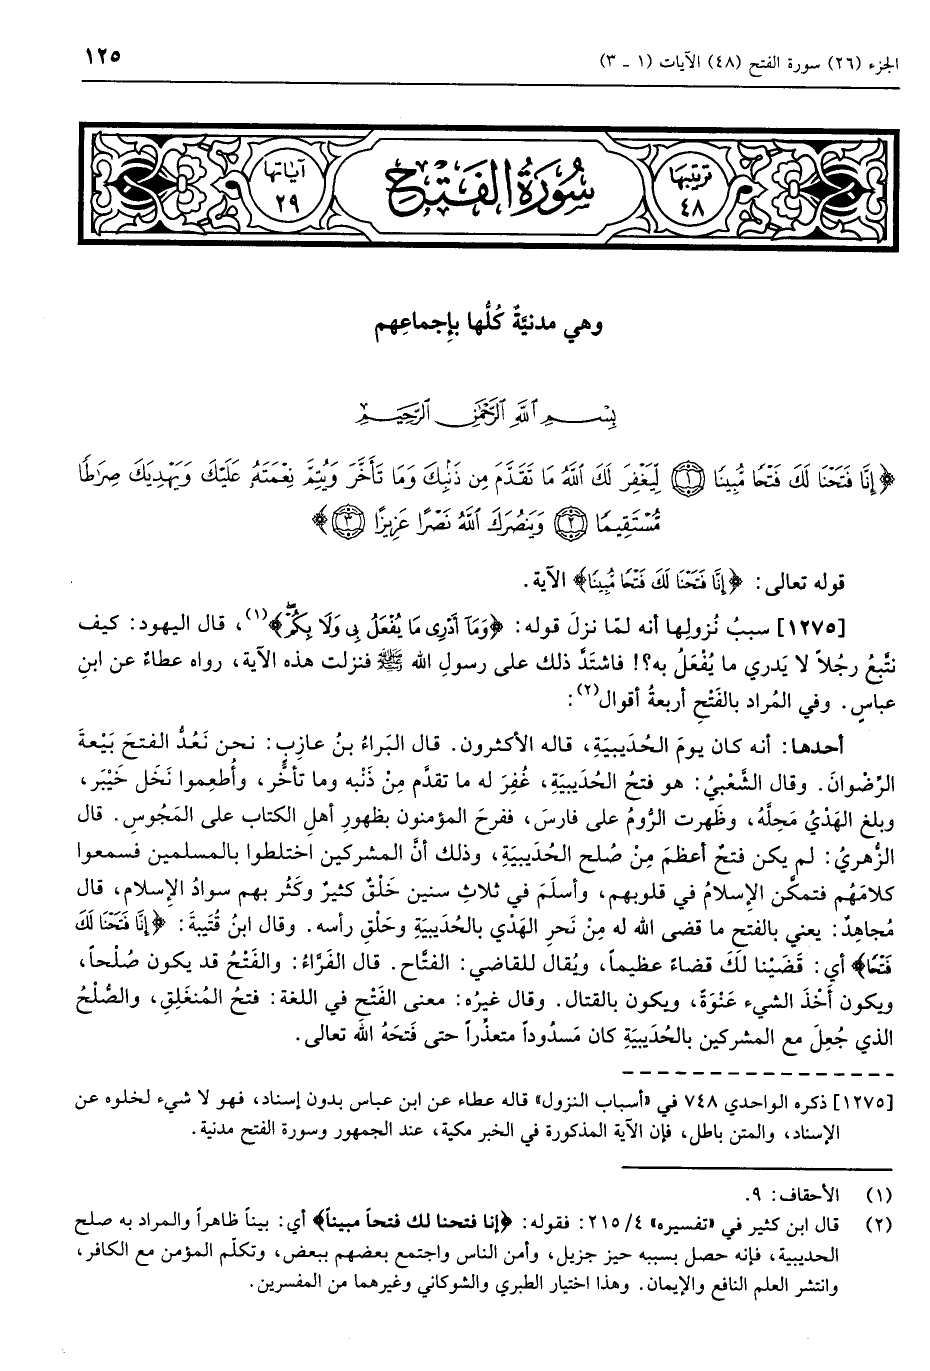 الجزء (٢٦) سورة الفتح (٤٨) الآيات (١ ـ ٣)
١٢٥
ترتيبها
٤٨
سُورَةُ الْفَتْحِ
آياتها
٢٩
وهي مدنيَّةٌ كُلُّها بإِجماعِهم
بِسْمِ ٱللَّهِ ٱلرَّحْمَٰنِ ٱلرَّحِيمِ
﴿إِنَّا فَتَحْنَا لَكَ فَتْحًا مُّبِينًا ١ لِّيَغْفِرَ لَكَ ٱللَّهُ مَا تَقَدَّمَ مِن ذَنۢبِكَ وَمَا تَأَخَّرَ وَيُتِمَّ نِعْمَتَهُۥ عَلَيْكَ وَيَهْدِيَكَ صِرَٰطًا
مُّسْتَقِيمًا ٢ وَيَنصُرَكَ ٱللَّهُ نَصْرًا عَزِيزًا ٣﴾
قوله تعالى: ﴿إِنَّا فَتَحْنَا لَكَ فَتْحًا مُّبِينًا﴾ الآية.
[١٢٧٥] سببُ نُزولِها أنه لمّا نزلَ قوله: ﴿وَمَآ أَدْرِى مَا يُفْعَلُ بِى وَلَا بِكُمْ﴾(١)، قال اليهود: كيف
نتَّبعُ رجُلاً لا يَدري ما يُفْعَلُ به؟! فاشتَدَّ ذلك على رسولِ الله ﷺ فنزلت هذه الآية، رواه عطاءٌ عن ابنِ
عباسٍ. وفي المُراد بالفَتْحِ أربعةُ أقوال(٢):
أحدها: أنه كان يومَ الحُديبيَةِ، قاله الأكثرون. قال البَراءُ بنُ عازبٍ: نحن نَعُدُّ الفتحَ بَيْعةَ
الرِّضْوانَ. وقال الشَّعْبيُّ: هو فتحُ الحُدَيبيَةِ، غُفِرَ له ما تقدَّم مِنْ ذَنْبه وما تأخَّر، وأُطعِموا نَخْل خَيْبَر،
وبلغ الهَدْيُ مَحِلَّهُ، وظَهرت الرُّومُ على فارسَ، ففرحَ المؤمنون بظهورِ أهلِ الكتاب على المَجُوسِ. قال
الزُّهريُّ: لم يكن فتحٌ أعظمَ مِنْ صُلحِ الحُدَيبيَةِ، وذلك أنَّ المشركين اختلطوا بالمسلمين فسمعوا
كلامَهُم فتمكَّن الإسلامُ في قلوبهم، وأسلَمَ في ثلاثِ سنين خَلْقٌ كثيرٌ وكَثُر بهم سوادُ الإسلام، قال
مُجاهدٌ: يعني بالفتحِ ما قضى الله له مِنْ نَحرِ الهَدْي بالحُدَيبيَةِ وحَلْقِ رأسه. وقال ابنُ قُتَيبةَ: ﴿إِنَّا فَتَحْنَا لَكَ
فَتْحًا﴾ أي: قَضَيْنا لكَ قضاءً عظيماً، ويُقال للقاضي: الفتَّاح. قال الفَرَّاءُ: والفَتْحُ قد يكون صُلْحاً،
ويكون أَخْذَ الشيءِ عَنْوَةً، ويكون بالقتال. وقال غيرُه: معنى الفَتْح في اللغة: فتحُ المُنغَلِقِ، والصُّلْحُ
الذي جُعِلَ مع المشركين بالحُدَيبيَةِ كان مَسدُوداً متعذِّراً حتى فَتَحَهُ الله تعالى.
[١٢٧٥] ذكره الواحدي ٧٤٨ في «أسباب النزول» قاله عطاء عن ابن عباس بدون إسناد، فهو لا شيء لخلوه عن
الإسناد، والمتن باطل، فإن الآية المذكورة في الخبر مكية، عند الجمهور وسورة الفتح مدنية.
(١) الأحقاف: ٩.
(٢) قال ابن كثير في «تفسيره» ٤/ ٢١٥: فقوله: ﴿إنا فتحنا لك فتحاً مبيناً﴾ أي: بيناً ظاهراً والمراد به صلح
الحديبية، فإنه حصل بسببه خير جزيل، وأمن الناس واجتمع بعضهم ببعض، وتكلّم المؤمن مع الكافر،
وانتشر العلم النافع والإيمان. وهذا اختيار الطبري والشوكاني وغيرهما من المفسرين.